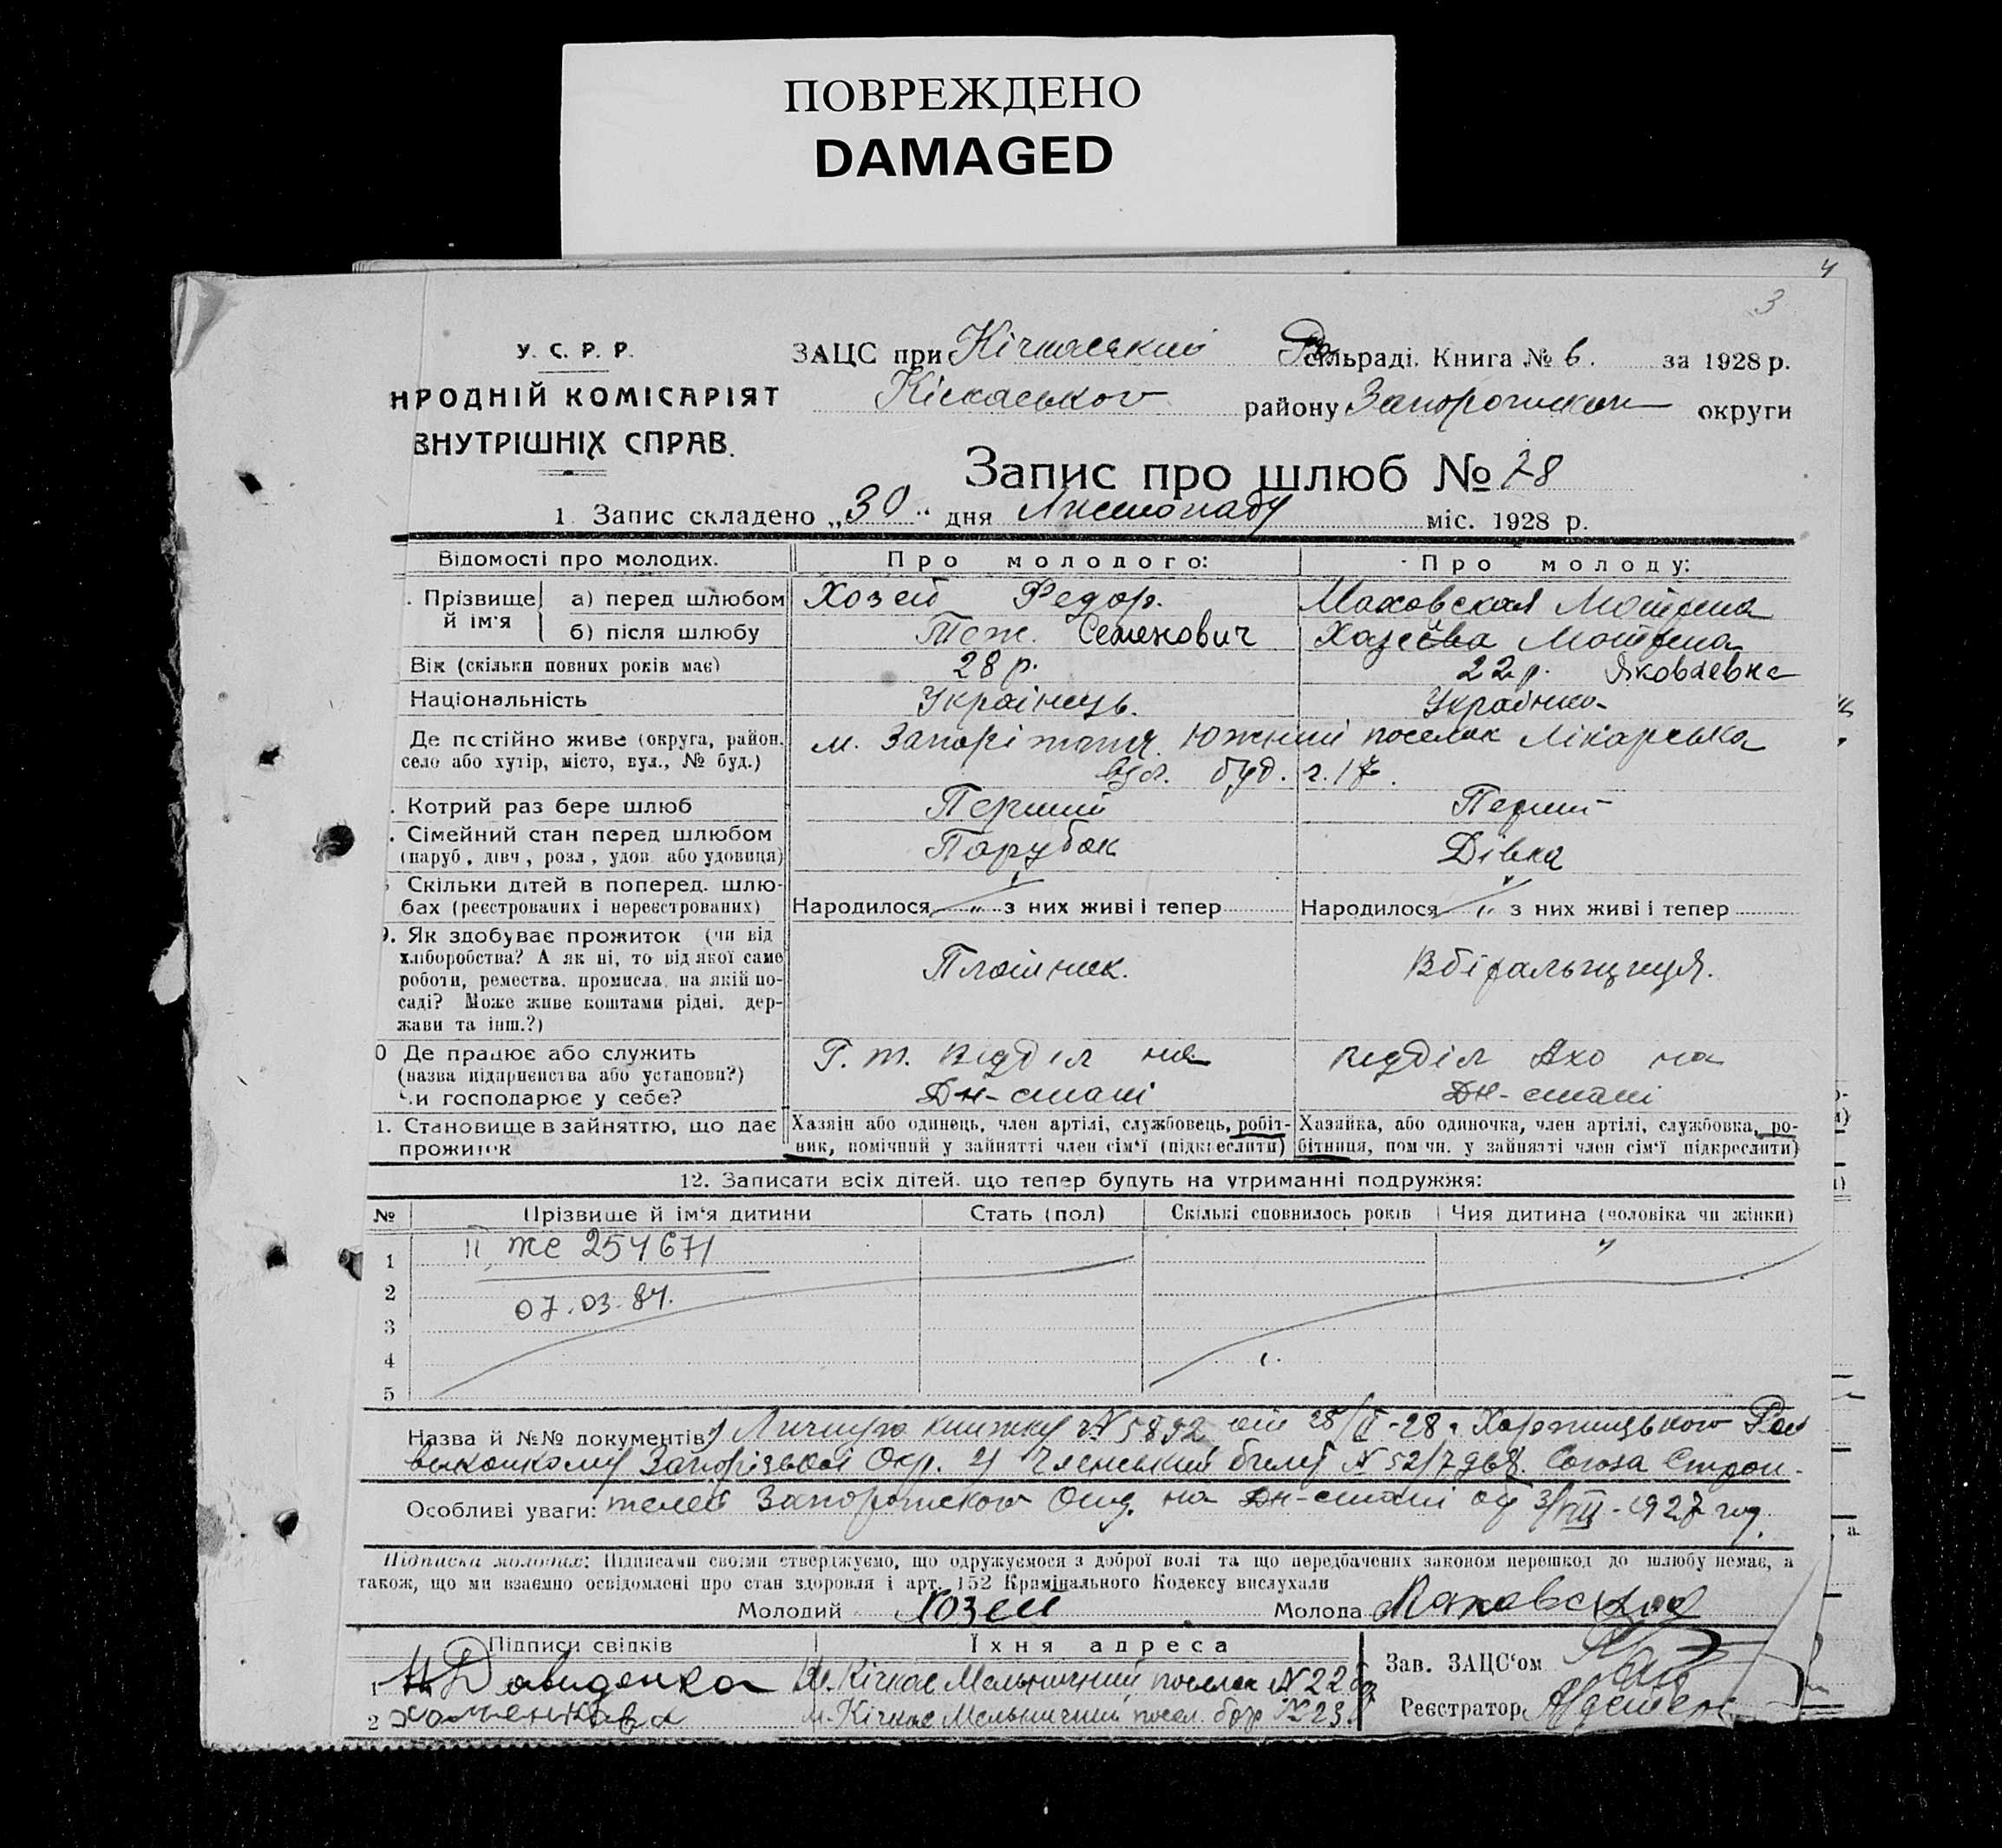 ПОВРЕЖДЕНО
DAMAGED
4
3
У. С. Р. Р.
НРОДНІЙ КОМІСАРІЯТ
ВНУТРІШНІХ СПРАВ.
ЗАЦС при Кічкаський сільраді. Книга № 6. за 1928 р.
Кічкаського району округи
Запис про шлюб № 78
1 Запис складено „30“ дня Листопаду міс. 1928 р.
Відомості про молодих. Про молодого: Про молоду:
Прізвище й ім'я а) перед шлюбом Хозей Федор. Маховская Мотрона
б) після шлюбу Тож. Семенович Мотрона
Вік (скільки повних років має) 28 р. 22 р. Яковлевна
Національність Українець. Українка
Де постійно живе (округа, район, село або хутір, місто, вул., № буд.) м. Запоріжжя Южний поселок Лікарська
буд. ч. 17.
Котрий раз бере шлюб Перший Перший
Сімейний стан перед шлюбом Парубок Дівка
(паруб, дівч, розл, удов. або удовиця)
Скільки дітей в поперед. шлюбах (реєстрованих і нереєстрованих) Народилося „ з них живі і тепер Народилося „ з них живі і тепер
9. Як здобуває прожиток (чи від
хліборобства? А як ні, то від якої саме
роботи, ремества, промисла, на якій по-
саді? Може живе коштами рідні, дер-
жави та інш.?) Плотник. Вбіральщиця.
0 Де працює або служить Г. т. відділ на відділ Ахо на
(назва підприємства або установи?) Дн-стані Дн-стані
Чи господарює у себе?
1. Становище в зайняттю, що дає прожиток
Хазяїн або одинець, член артілі, службовець, робіт-
ник, помічний у зайнятті член сім'ї (підкреслити)
Хазяйка, або одиночка, член артілі, службовка, ро-
бітниця, пом чн. у зайнятті член сім'ї підкреслити)
12. Записати всіх дітей, що тепер будуть на утриманні подружжя:
№ Прізвище й ім'я дитини Стать (пол) Скількі сповнилось років Чия дитина (чоловіка чи жінки)
1 II ЖС 254671
2 07.03.84.
3
4
5
Назва й №№ документів: 1) Личную книжку № 5892 28/II-28
Запорізької Окр. 2) Членський билет № Союза Строи-
Особливі уваги: телей Запорожского на Дн-стані од 3/VIII-1927 год.
Підписка молодих: Підписами своїми стверджуємо, що одружуємося з доброї волі та що передбачених законом перешкод до шлюбу немає, а
також, що ми взаємно освідомлені про стан здоровля і арт. 152 Кримінального Кодексу вислухали
Молодий Хозей Молода Маховская
Підписи свідків Їхня адреса Зав. ЗАЦС'ом
1 Н Давиденко м. Кічкас Мельничний поселок № 22
2 м. Кічкас Мельничний посел. № 23 Реєстратор